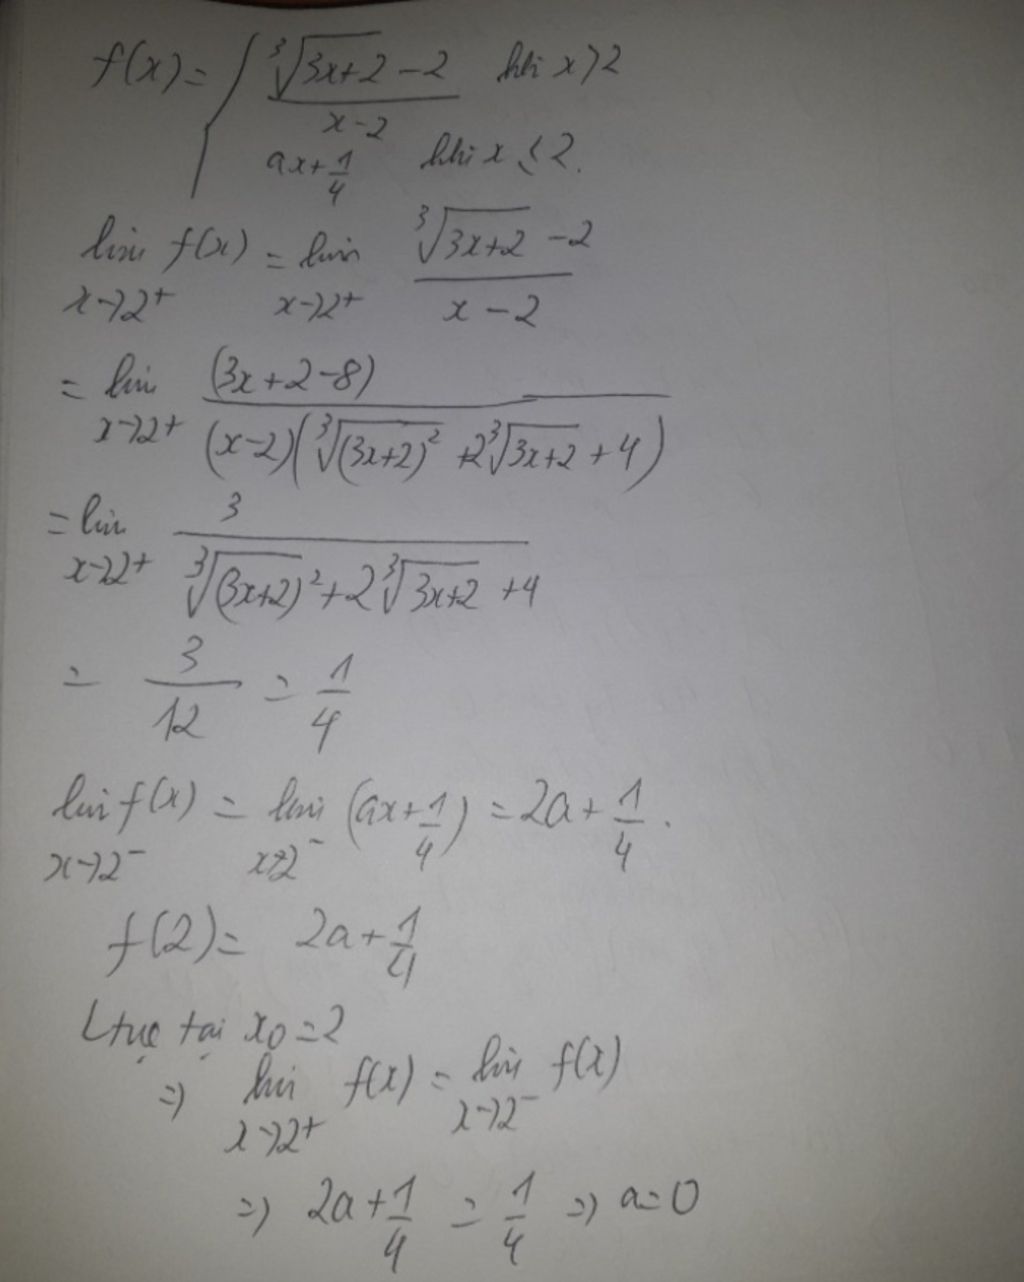 f(x) = { (∛(3x+2) - 2)/(x-2) khi x > 2
ax + 1/4 khi x ≤ 2.
lim x→2⁺ f(x) = lim x→2⁺ (∛(3x+2) - 2)/(x - 2)
= lim x→2⁺ (3x+2-8)/((x-2)(∛(3x+2)² + 2∛(3x+2) + 4))
= lim x→2⁺ 3/(∛(3x+2)² + 2∛(3x+2) + 4)
= 3/12 = 1/4
lim x→2⁻ f(x) = lim x→2⁻ (ax + 1/4) = 2a + 1/4.
f(2) = 2a + 1/4
Ltục tại x₀ = 2
=> lim x→2⁺ f(x) = lim x→2⁻ f(x)
=> 2a + 1/4 = 1/4 => a = 0